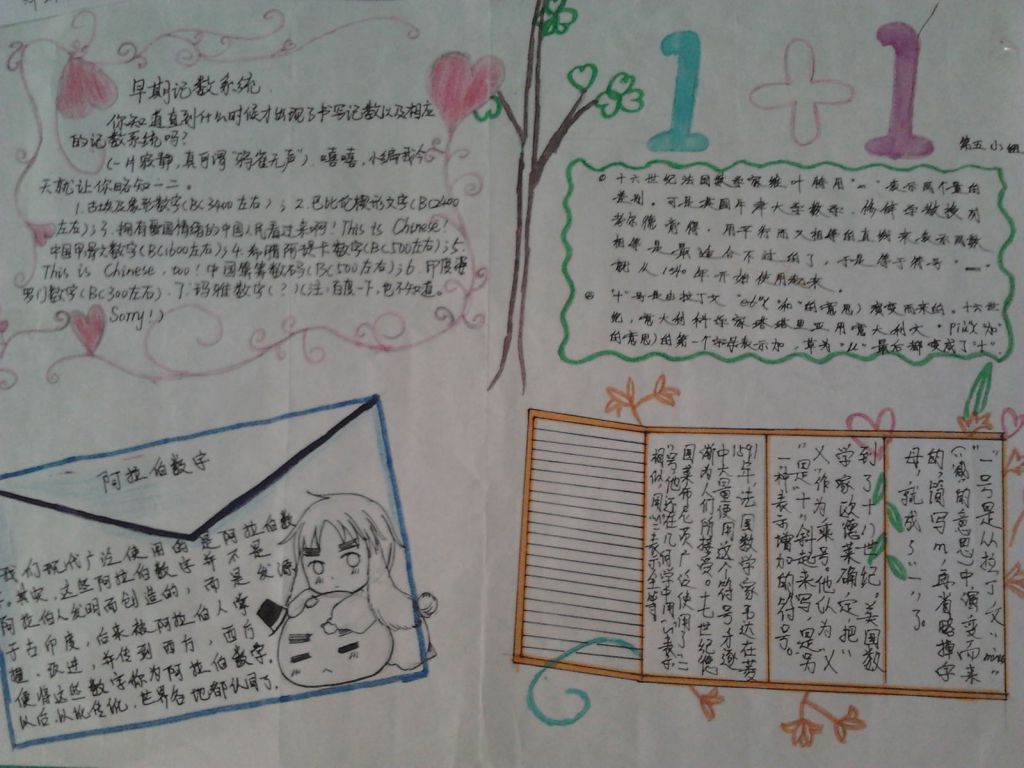 早期记数系统
你知道直到什么时候才出现了书写记数以及相应
的记数系统吗?
(一片寂静,真可谓"鸦雀无声"). 嘻嘻,小编我今
天就让你略知一二。
1.古埃及象形数字(BC3400左右); 2.巴比伦楔形文字(BC2400
左右); 3.拥有爱国情绪的中国人民看过来啊! This is Chinese!
中国甲骨文数字(BC1600左右); 4.希腊阿提卡数字(BC500左右); 5.
This is Chinese, too! 中国筹算数码(BC500左右); 6.印度婆
罗门数字(BC300左右). 7.玛雅数字(?)(注:百度一下,也不知道。
Sorry!)
1+1
第五小组
十六世纪法国数学家维叶特用"="表示两个量的
差别。可是英国牛津大学数学、修辞学教授列
考尔德觉得,用平行而又相等的直线来表示两数
相等是最适合不过的了,于是等于符号"="
就从1540年开始使用起来。
"+"号是由拉丁文"et"("和"的意思)演变而来的。十六世
纪,意大利科学家塔塔里亚用意大利文"più"(加"
的意思)的第一个字母表示加,草为"μ"最后都变成了"+".
阿拉伯数字
我们现代广泛使用的是阿拉伯数
字。其实,这些阿拉伯数字并不是
阿拉伯人发明而创造的,而是发源
于古印度,后来被阿拉伯人掌
握、改进,并传到西方,西方
便将这些数字称为阿拉伯数字。
以后,以讹传讹,世界各地都认同了。
"-"号是从拉丁文"minus"
(减的意思)中演变而来
的,简写m,再省略掉字
母,就成了"-"了。
到了十八世纪,美国数
学家欧德莱确定,把"
×"作为乘号。他认为"×
"是"十"斜起来写,是另
一种表示增加的符号。
1591年,法国数学家韦达在菱
中大量使用这个符号,才逐
渐为人们所接受。十七世纪德
国莱布尼茨广泛使用了"=
"号,他还在几何学中用"∽"表示
相似,用"≌"表示全等。